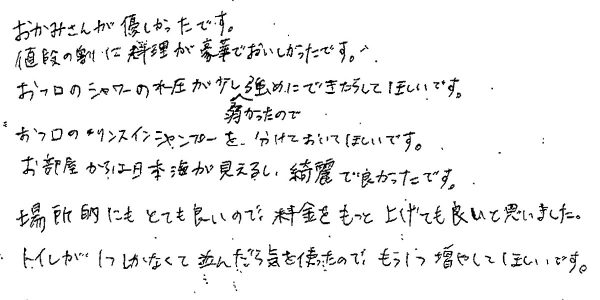 おかみさんが優しかったです。
値段の割に料理が豪華でおいしかったです。
おフロのシャワーの水圧が少し強めにできたらしてほしいです。
弱かったので
おフロのリンスインシャンプーを、分けておいてほしいです。
お部屋からは日本海が見えるし、綺麗で良かったです。
場所的にもとても良いので、料金をもっと上げても良いと思いました。
トイレが1つしかなくて並んだら気を使ったので、もう1つ増やしてほしいです。